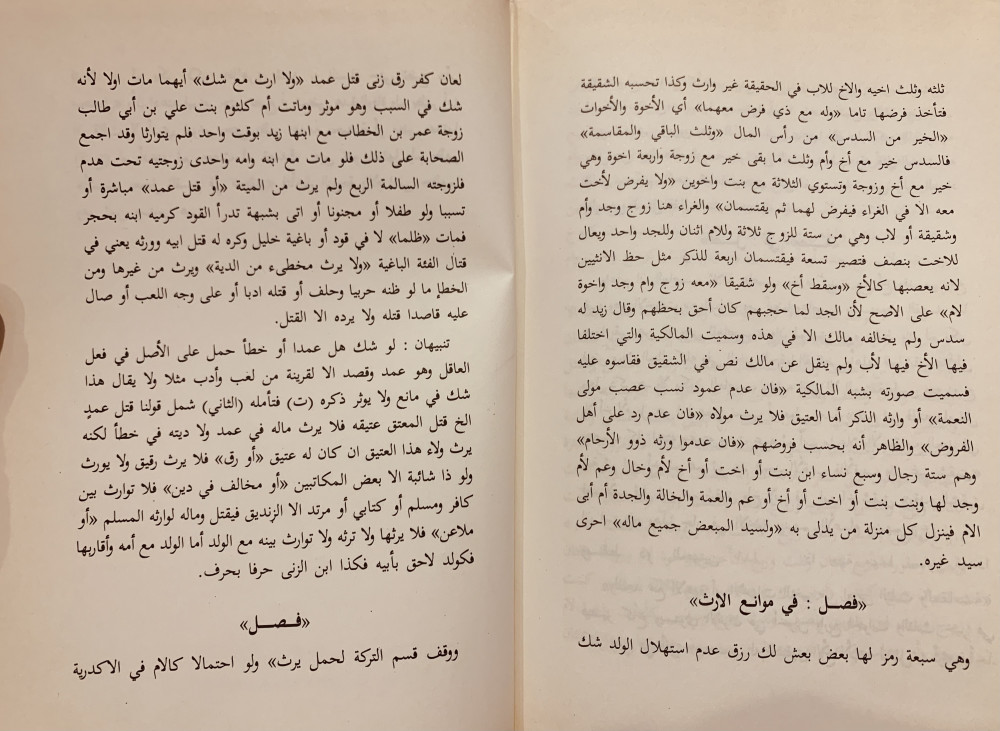 ثلثه وثلث اخيه والاخ للاب في الحقيقة غير وارث وكذا تحسبه الشقيقة
فتأخذ فرضها تاما «وله مع ذي فرض معهما» أي الأخوة والأخوات
«الخير من السدس» من رأس المال «وثلث الباقي والمقاسمة»
فالسدس خير مع أخ وأم وثلث ما بقى خير مع زوجة واربعة اخوة وهي
خير مع أخ وزوجة وتستوي الثلاثة مع بنت واخوين «ولا يفرض لأخت
معه الا في الغراء فيفرض لهما ثم يقتسمان» والغراء هنا زوج وجد وأم
وشقيقة أو لاب وهي من ستة للزوج ثلاثة وللام اثنان وللجد واحد ويعال
للاخت بنصف فتصير تسعة فيقتسمان اربعة للذكر مثل حظ الانثيين
لانه يعصبها كالأخ «وسقط أخ» ولو شقيقا «معه زوج وام وجد واخوة
لام» على الاصح لأن الجد لما حجبهم كان أحق بحظهم وقال زيد له
سدس ولم يخالفه مالك الا في هذه وسميت المالكية والتي اختلفا
فيها الأخ فيها لأب ولم ينقل عن مالك نص في الشقيق فقاسوه عليه
فسميت صورته بشبه المالكية «فان عدم عمود نسب عصب مولى
النعمة» أو وارثه الذكر أما العتيق فلا يرث مولاه «فان عدم رد على أهل
الفروض» والظاهر أنه بحسب فروضهم «فان عدموا ورثه ذوو الأرحام»
وهم ستة رجال وسبع نساء ابن بنت أو اخت أو أخ لأم وخال وعم لأم
وجد لها وبنت بنت أو اخت أو أخ أو عم والعمة والخالة والجدة أم أبى
الام فينزل كل منزلة من يدلى به «ولسيد المبعض جميع ماله» احرى
سيد غيره.
«فصـل : في موانـع الارث»
وهي سبعة رمز لها بعض بعش لك رزق عدم استهلال الولد شك
لعان كفر رق زنى قتل عمد «ولا ارث مع شك» أيهما مات اولا لأنه
شك في السبب وهو موثر وماتت أم كلثوم بنت علي بن أبي طالب
زوجة عمر بن الخطاب مع ابنها زيد بوقت واحد فلم يتوارثا وقد اجمع
الصحابة على ذلك فلو مات مع ابنه وامه واحدى زوجتيه تحت هدم
فلزوجته السالمة الربع ولم يرث من الميتة «أو قتل عمد» مباشرة أو
تسببا ولو طفلا أو مجنونا أو اتى بشبهة تدرأ القود كرميه ابنه بحجر
فمات «ظلما» لا في قود أو باغية خليل وكره له قتل ابيه وورثه يعني في
قتال الفئة الباغية «ولا يرث مخطىء من الدية» ويرث من غيرها ومن
الخطإ ما لو ظنه حربيا وحلف أو قتله ادبا أو على وجه اللعب أو صال
عليه قاصدا قتله ولا يرده الا القتل.
تنبيهان : لو شك هل عمدا أو خطأ حمل على الأصل في فعل
العاقل وهو عمد وقصد الا لقرينة من لعب وأدب مثلا ولا يقال هذا
شك في مانع ولا يوثر ذكره (ت) فتأمله (الثاني) شمل قولنا قتل عمدٍ
الخ قتل المعتق عتيقه فلا يرث ماله في عمد ولا ديته في خطأ لكنه
يرث ولاء هذا العتيق ان كان له عتيق «أو رق» فلا يرث رقيق ولا يورث
ولو ذا شائبة الا بعض المكاتبين «أو مخالف في دين» فلا توارث بين
كافر ومسلم أو كتابي أو مرتد الا الزنديق فيقتل وماله لوارثه المسلم «أو
ملاعن» فلا يرثها ولا ترثه ولا توارث بينه مع الولد أما الولد مع أمه وأقاربها
فكولد لاحق بأبيه فكذا ابن الزنى حرفا بحرف.
«فـصـل»
ووقف قسم التركة لحمل يرث» ولو احتمالا كالام في الاكدرية